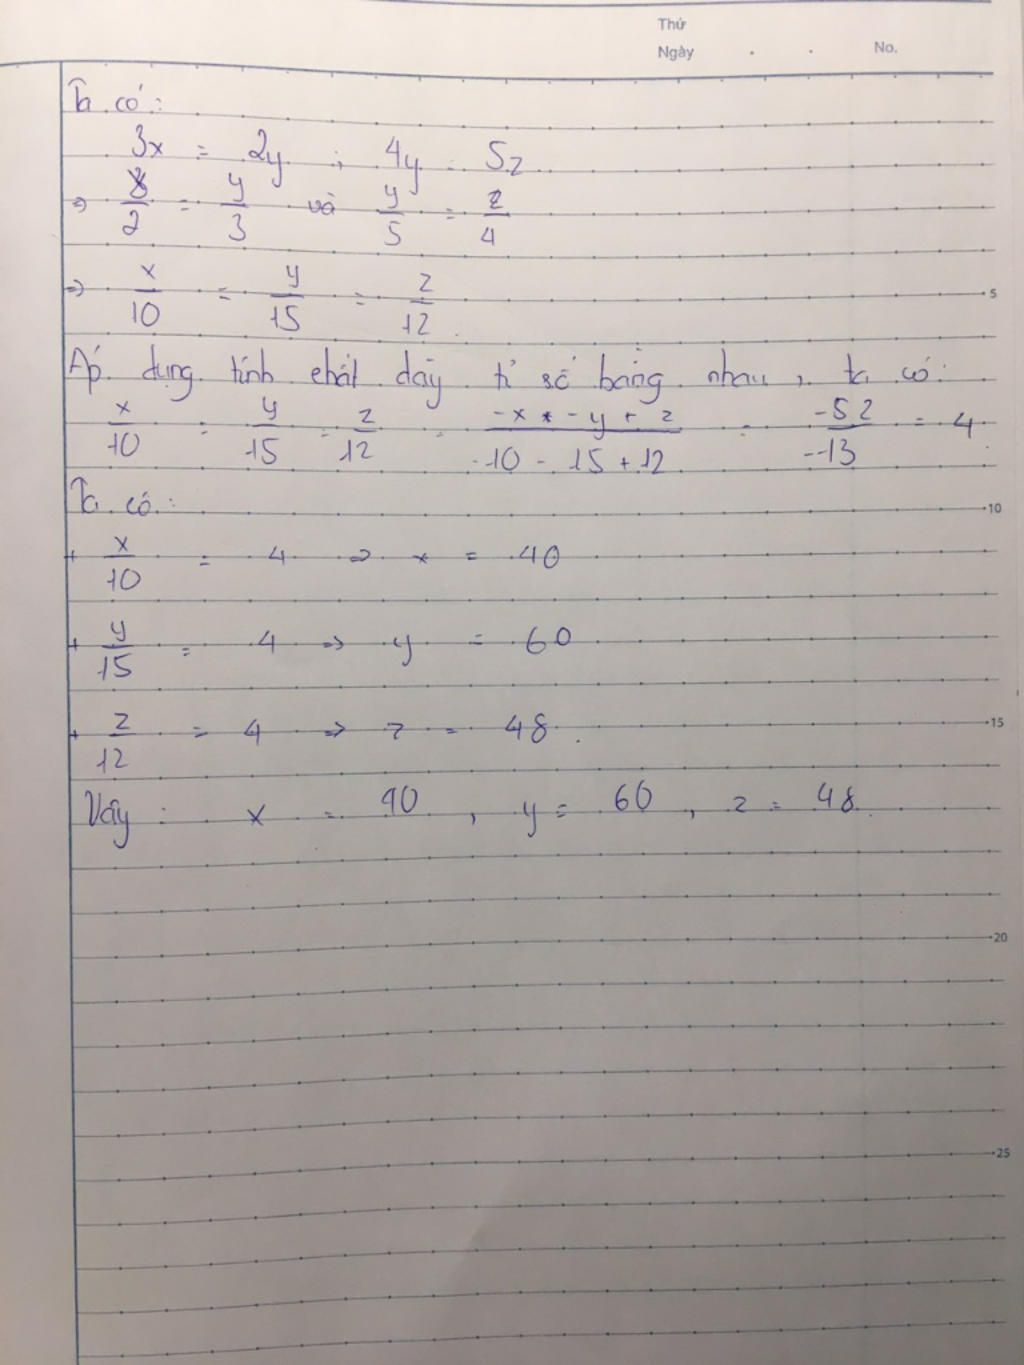 Thứ
Ngày . . No.
Ta có:
3x = 2y ; 4y = 5z
=> x/2 = y/3 và y/5 = z/4
=> x/10 = y/15 = z/12
5
Áp dụng tính chất dãy tỉ số bằng nhau, ta có:
x/10 = y/15 = z/12 = -x - y + z / -10 - 15 + 12 = -52/-13 = 4
Ta có:
10
+ x/10 = 4 => x = 40
+ y/15 = 4 => y = 60
+ z/12 = 4 => z = 48.
15
Vậy: x = 40, y = 60, z = 48.
20
25